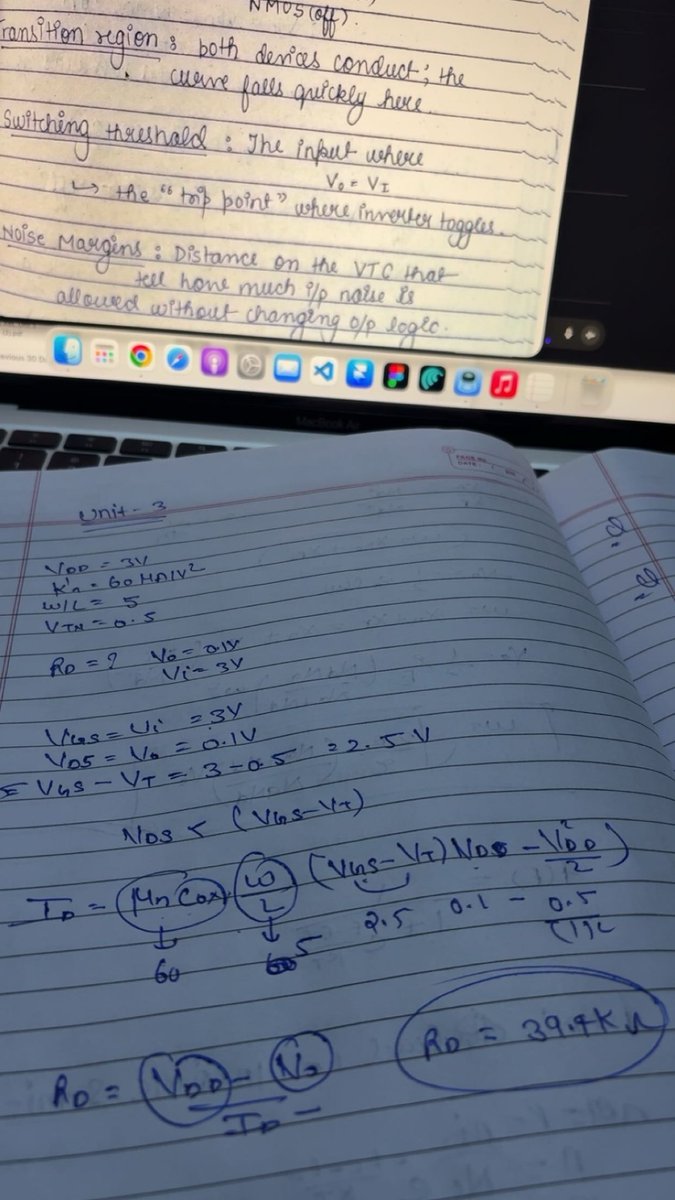 NMOS (off).
Transition region : both devices conduct; the
curve falls quickly here.
Switching threshold : The input where
V₀ = V_I
↳ the "trip point" where inverter toggles.
Noise Margins : Distance on the VTC that
tell hone much i/p noise is
allowed without changing o/p logic.
MacBook Air
PAGE No.
DATE
Unit - 3
V_DD = 3V
K'n = 60 µA/V²
W/L = 5
V_TN = 0.5
R_D = ? V₀ = 0.1V
Vi = 3V
V_GS = Vi = 3V
V_DS = V₀ = 0.1V
V_GS - V_T = 3 - 0.5 = 2.5 V
V_DS < (V_GS - V_T)
I_D = µn Cox W/2 (V_GS - V_T) V_DS - V²_DD/2)
60 5 2.5 0.1 - 0.5
R_D = V_DD - V₀ / I_D
R_D = 39.4K Ω